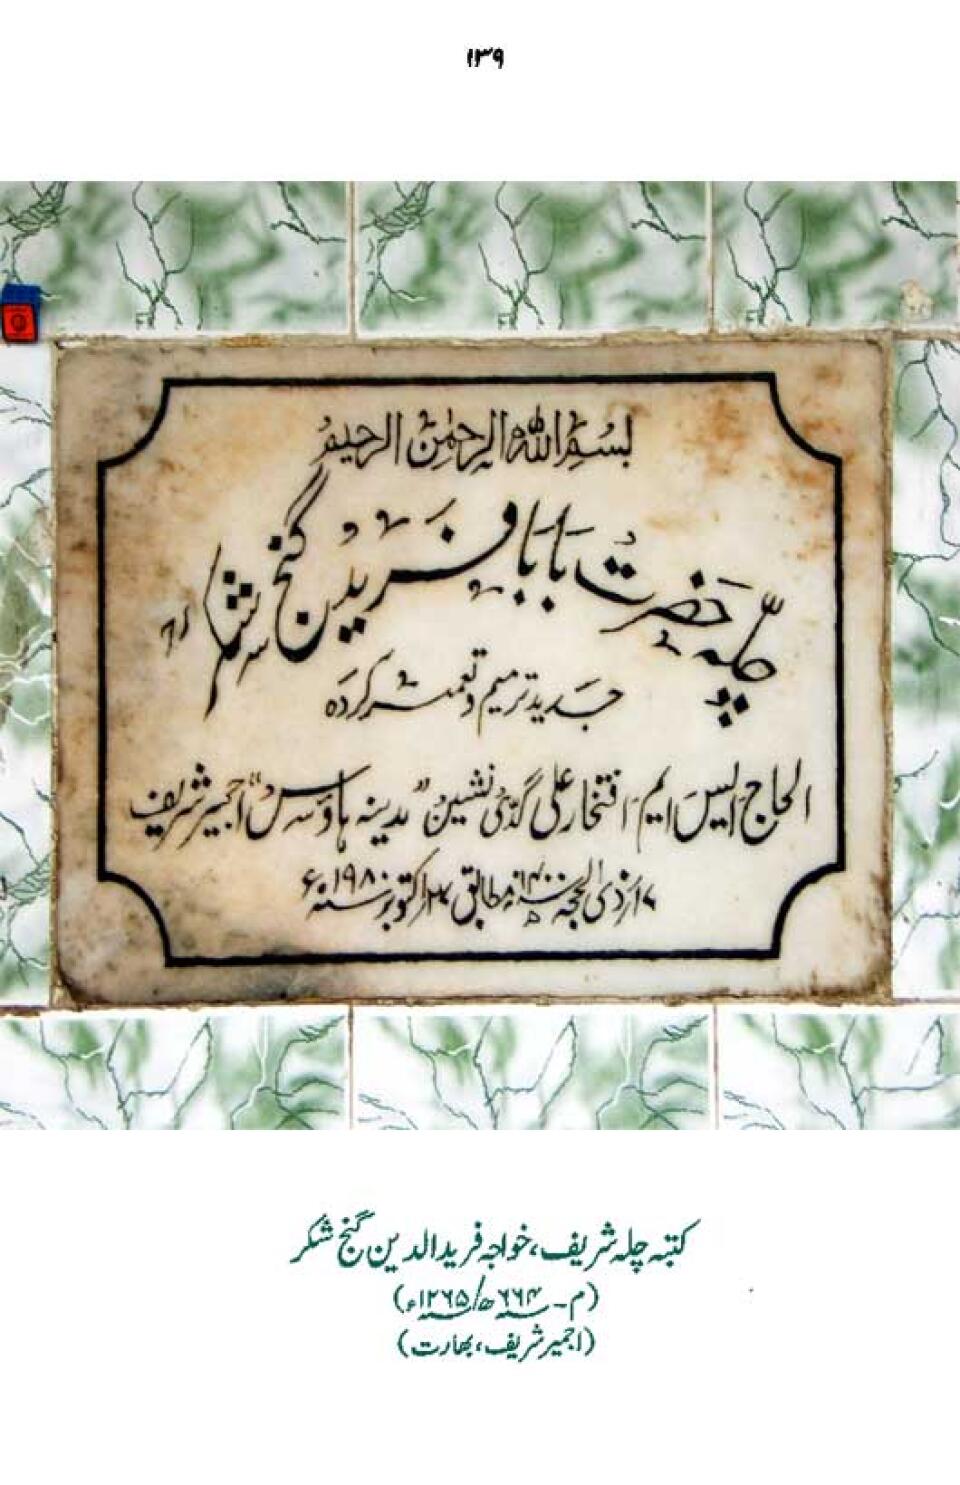 ۱۳۹
بسم الله الرحمٰن الرحیم
چلہ حضرت بابا فرید گنج شکر
جدید ترمیم و تعمیر کردہ
الحاج ایس ایم افتخار علی گدی نشین "مدینہ ہاؤس" اجمیر شریف
۱۷؍ ذی الحجہ سنہ ۱۴۰۰ھ مطابق ۲۷؍ اکتوبر سنہ ۱۹۸۰ء
کتبہ چلہ شریف، خواجہ فرید الدین گنج شکر
(م۔ سنہ ۶۶۴ھ/سنہ ۱۲۶۵ء)
(اجمیر شریف، بھارت)